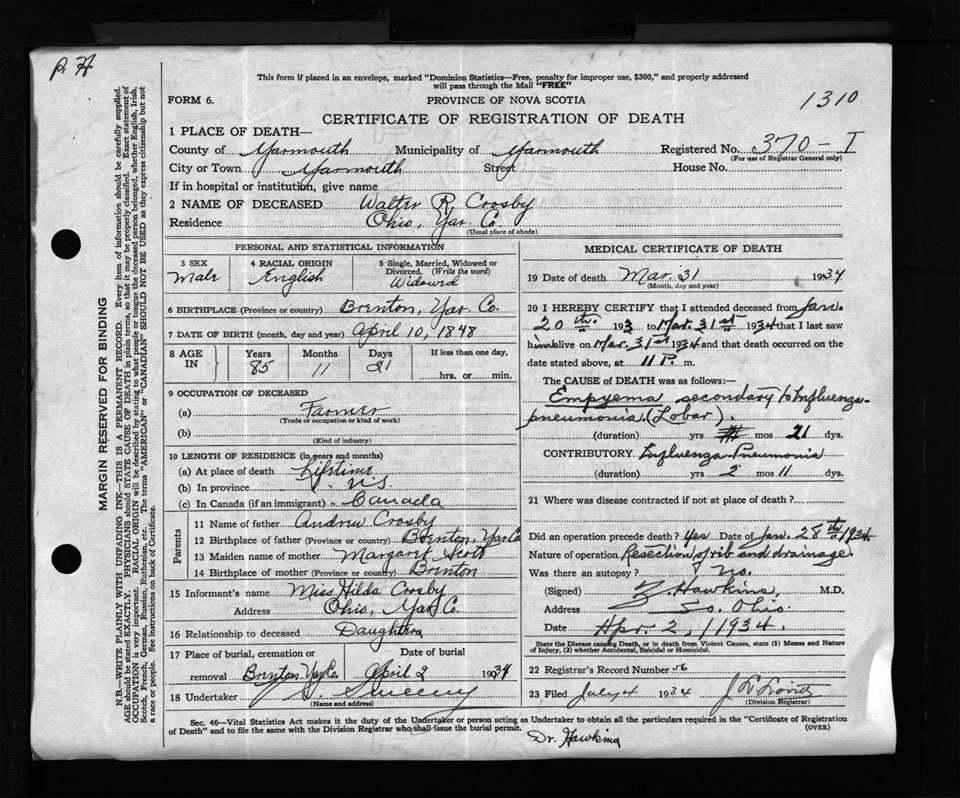 P. H
This form if placed in an envelope, marked "Dominion Statistics—Free, penalty for improper use, $300," and properly addressed
will pass through the Mail "FREE"
FORM 6.
PROVINCE OF NOVA SCOTIA
1310
CERTIFICATE OF REGISTRATION OF DEATH
1 PLACE OF DEATH—
County of Yarmouth Municipality of Yarmouth Registered No. 370 - I
(For use of Registrar General only)
City or Town Yarmouth Street House No.
If in hospital or institution, give name
2 NAME OF DECEASED Walter R. Crosby
Residence Ohio, Yar Co.
(Usual place of abode)
PERSONAL AND STATISTICAL INFORMATION
3 SEX 4 RACIAL ORIGIN 5 Single, Married, Widowed or Divorced. (Write the word)
Male English Widowed
6 BIRTHPLACE (Province or country) Brenton, Yar Co.
7 DATE OF BIRTH (month, day and year) April 10, 1848
8 AGE IN Years Months Days If less than one day,
85 11 21 hrs. or min.
9 OCCUPATION OF DECEASED
(a) Farmer
(Trade or occupation or kind of work)
(b)
(Kind of industry)
10 LENGTH OF RESIDENCE (in years and months)
(a) At place of death Lifetime
(b) In province " N.S
(c) In Canada (if an immigrant) " Canada
Parents
11 Name of father Andrew Crosby
12 Birthplace of father (Province or country) Brenton, Yar Co
13 Maiden name of mother Margaret Scott
14 Birthplace of mother (Province or country) Brenton
15 Informant's name Miss Hilda Crosby
Address Ohio, Yar Co.
16 Relationship to deceased Daughter
17 Place of burial, cremation or removal Date of burial
Brenton Yar Co. April 2 1934
18 Undertaker Sweeny
(Name and address)
MEDICAL CERTIFICATE OF DEATH
19 Date of death Mar. 31 1934
(Month, day and year)
20 I HEREBY CERTIFY that I attended deceased from Jan.
20th 193 to Mar. 31st 1934 that I last saw
him alive on Mar. 31st 1934 and that death occurred on the
date stated above, at 11 P. m.
The CAUSE OF DEATH was as follows:
Empyema secondary to Influenza-
pneumonia (Lobar).
(duration) yrs mos 21 dys.
CONTRIBUTORY Influenza-Pneumonia
(duration) yrs 2 mos 11 dys.
21 Where was disease contracted if not at place of death?
Did an operation precede death? Yes Date of Jan. 28th 1934
Nature of operation Resection of rib and drainage.
Was there an autopsy? No.
(Signed) Hawkins, M.D.
Address So. Ohio.
Date Apr 2, 1934.
State the Disease causing Death, or in death from Violent Causes, state (1) Means and Nature
of Injury, (2) whether Accidental, Suicidal or Homicidal.
22 Registrar's Record Number 56
23 Filed July 4 1934
(Division Registrar)
Sec. 46—Vital Statistics Act makes it the duty of the Undertaker or person acting as Undertaker to obtain all the particulars required in the "Certificate of Registration
of Death" and to file the same with the Division Registrar who shall issue the burial permit.
(OVER)
Dr. Hawkins
MARGIN RESERVED FOR BINDING
N.B.—WRITE PLAINLY WITH UNFADING INK—THIS IS A PERMANENT RECORD. Every item of information should be carefully supplied.
AGE should be stated EXACTLY. PHYSICIANS should STATE CAUSE OF DEATH in plain terms, so that it may be properly classified. Exact statement of
OCCUPATION is very important. RACIAL ORIGIN will be described by stating to what people or tongue the deceased person belonged, whether English, Irish,
Scotch, French, German, Russian, Ruthenian, etc. The terms "AMERICAN" or "CANADIAN" SHOULD NOT BE USED as they express citizenship but not
a race or people. See instructions on back of Certificate.